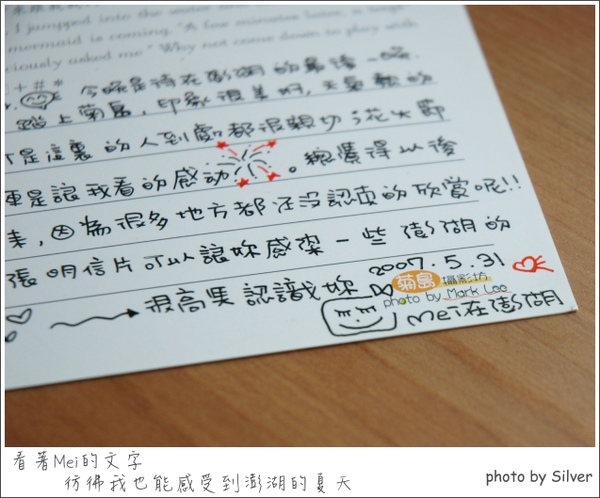 I jumpped into the water
mermaid is coming. "A few minutes later, a
ciously asked me" Why not come down to play with
!+#* 今晚是待在澎湖的最後一晚.
踏上菊島，印象很美好，天氣熱的
是這裏的人到處都很親切，花火節
更是讓我看的感动。總覺得以後
來，因為很多地方都还沒認真的欣賞呢!!
張明信片可以讓妳感染一些澎湖的
2007.5.31
很高興認識妳
菊島 攝影坊
photo by Mark Lee
Mei在澎湖
看著Mei的文字
彷彿我也能感受到澎湖的夏天
photo by Silver